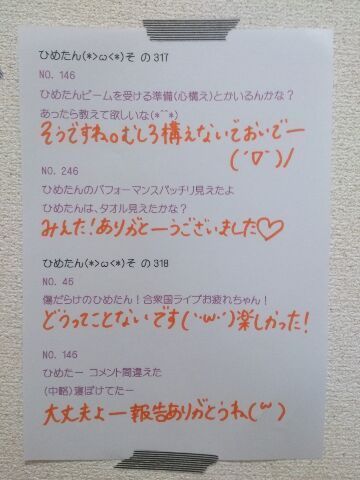 ひめたん(*>ω<*)そ の317
NO. 146
ひめたんビームを受ける準備(心構え)とかいるんかな?
あったら教えて欲しいな(*^^*)
そうですね。むしろ構えないでおいでー
(´∇`)/
NO. 246
ひめたんのパフォーマンスバッチリ見えたよ
ひめたんは、タオル見えたかな?
みえた!ありがとーうございました♡
ひめたん(*>ω<*)そ の318
NO. 46
傷だらけのひめたん!合衆国ライブお疲れちゃん!
どうってことないです(´・ω・`)楽しかった!
NO. 146
ひめたー コメント間違えた
(中略)寝ぼけてたー
大丈夫よー報告ありがとうね(´ω`)